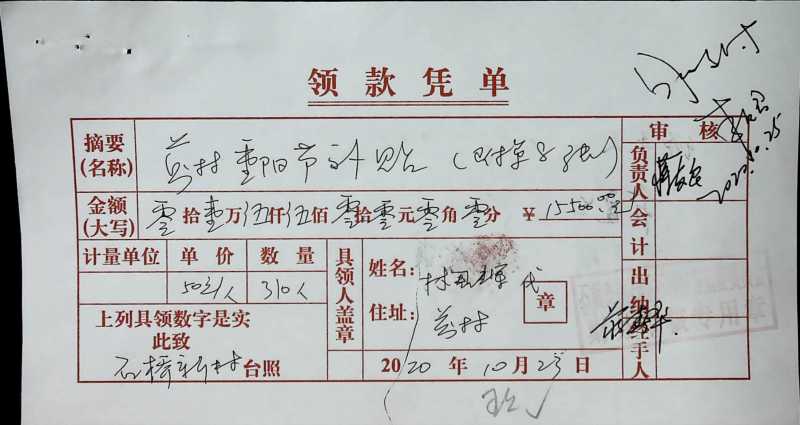 领款凭单
摘要
(名称)
村重阳节补贴
审核
负责人
2020.10.25
金额
(大写)
零拾壹万伍仟伍佰零拾零元零角零分 ¥ 15500.00元
会计
计量单位 单价 数量
50元/人 310人
具领人盖章
姓名: 代
住址: 村
章
出纳
经手人
上列具领数字是实
此致
石桥新村台照
2020年10月25日